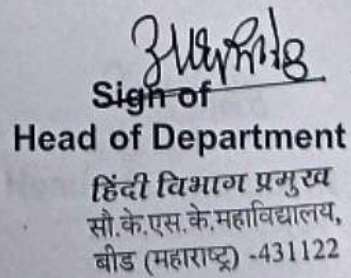 Sign of
Head of Department
हिंदी विभाग प्रमुख
सौ.के.एस.के.महाविद्यालय,
बीड (महाराष्ट्र) -431122